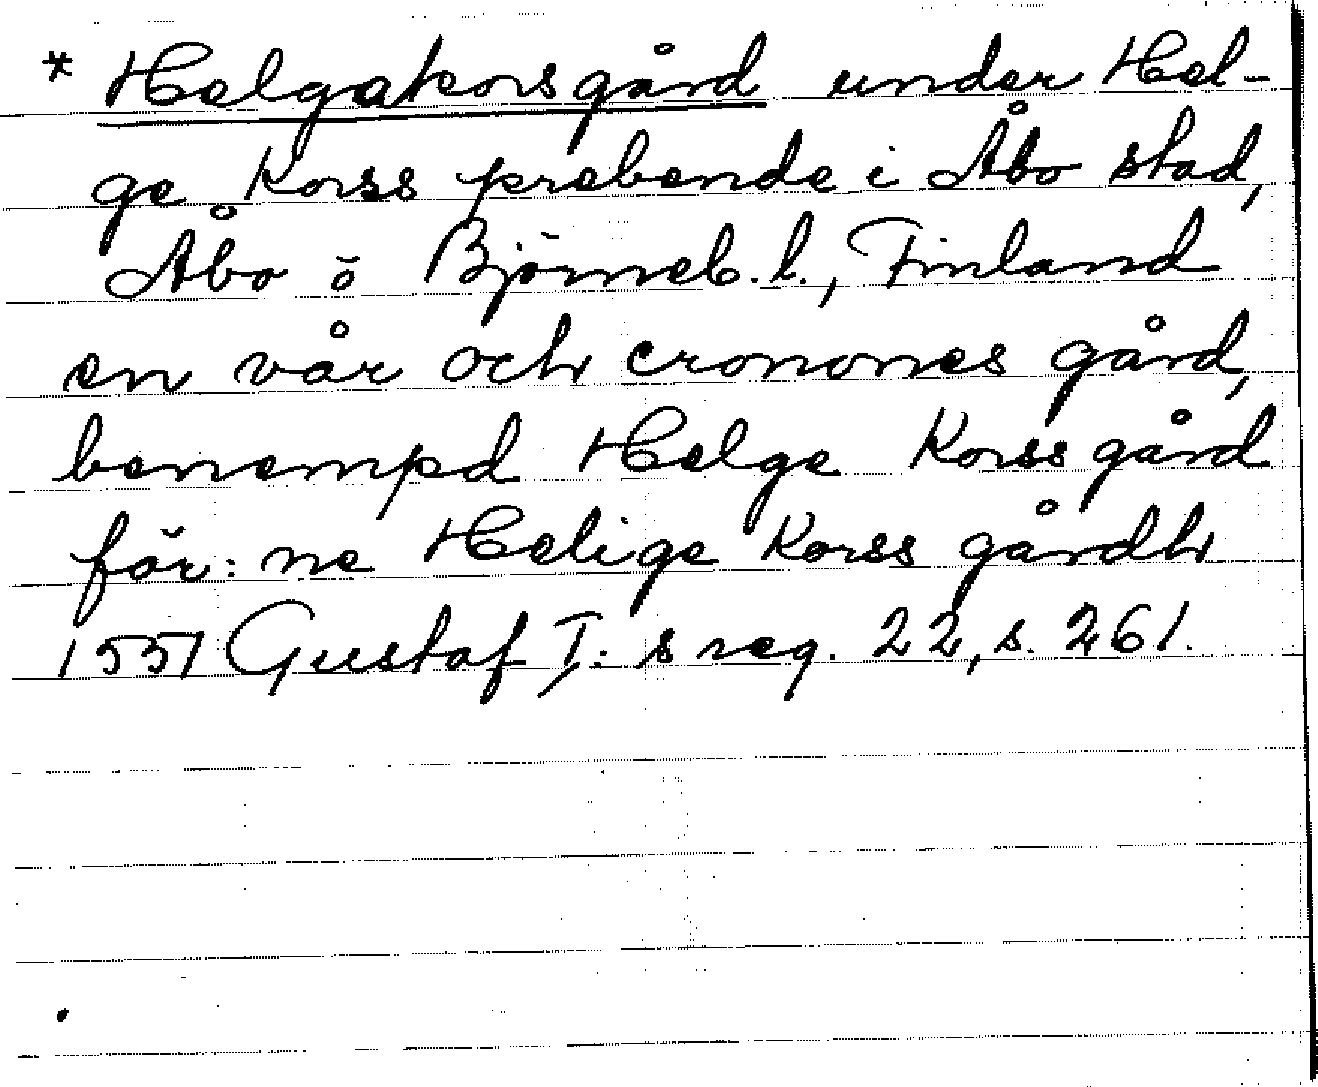 * Helgakorsgård under Hel-
ge Korss prebende i Åbo stad,
Åbo ö Björneb. l., Finland
en vår och cronones gård,
benempd Helge Korss gård
för:ne Helige Korss gårdh
1551 Gustaf I:s reg. 22, s. 261.